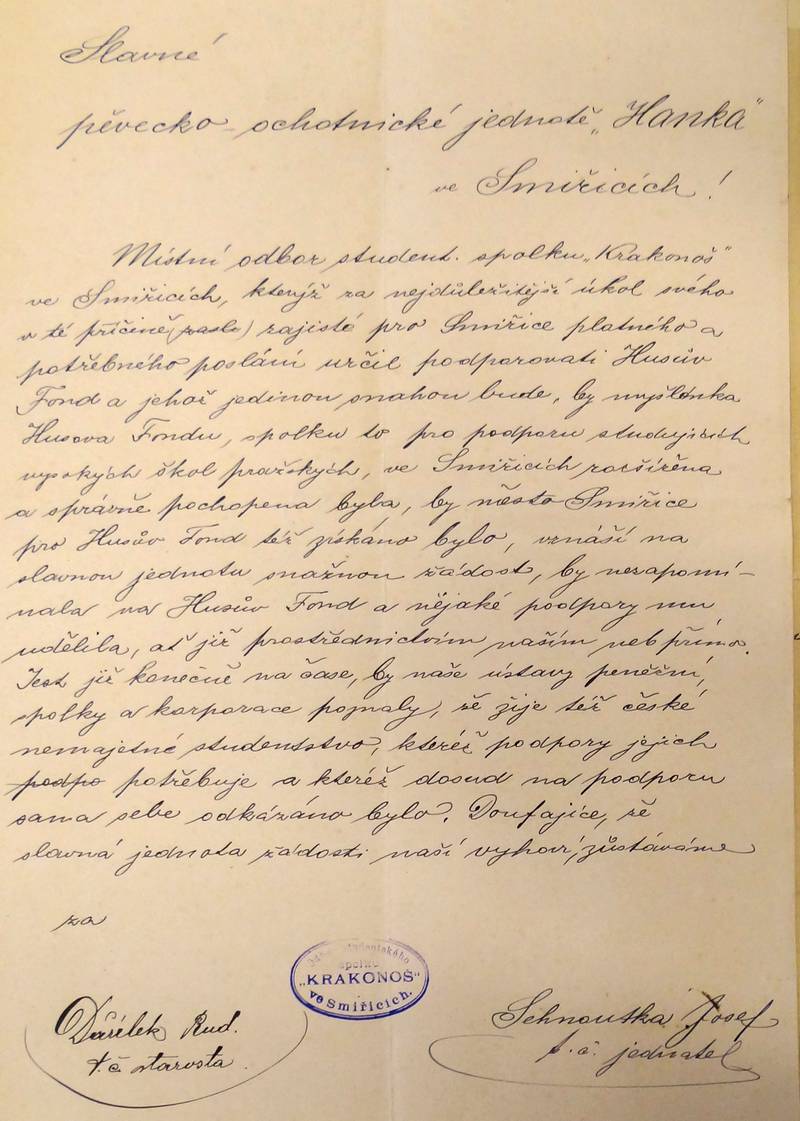 Slavné
pěvecko-ochotnické jednotě „Hanka“
ve Smiřicích!
Místní odbor student. spolku „Krakonoš“
ve Smiřicích, kterýž za nejdůležitější úkol svého
v té příčině (zaslo) zajisté pro Smiřice platného a
potřebného poslání určil podporovati Husův
Fond a jehož jedinou snahou bude, by myšlénka
Husova Fondu, spolku to pro podporu studujících
vysokých škol pražských, ve Smiřicích rozšířena
a správně pochopena byla, by město Smiřice
pro Husův Fond též získáno bylo, vznáší na
slavnou jednotu snažnou žádost, by nezapomí-
nala na Husův Fond a nějaké podpory mu
udělila, ať již prostřednictvím naším neb přímo.
Jest již konečně na čase, by naše ústavy peněžní,
spolky a korporace pojmaly, že žije též české
nemajetné studentstvo, kteréž podpory jejich
podpo potřebuje a kteréž dosud na podporu
sama sebe odkázáno bylo. Doufajíce, že
slavná jednota žádosti naší vyhoví, zůstáváme
za
Odbor studentského
spolku
„KRAKONOŠ“
ve Smiřicích.
Rud.
t. č. starosta
Sehnoutka Josef
t. č. jednatel